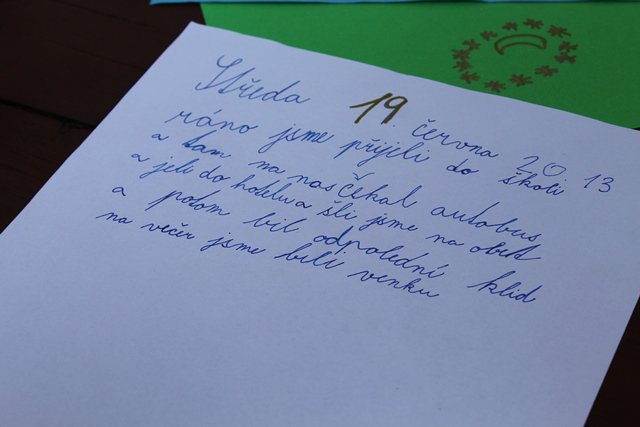 Středa 19 června 2013
ráno jsme přijeli do školi
a tam na nas čekal autobus
a jeli do hotelu a šli jsme na obed
a potom bil odpolední klid
na večer jsme bili venku